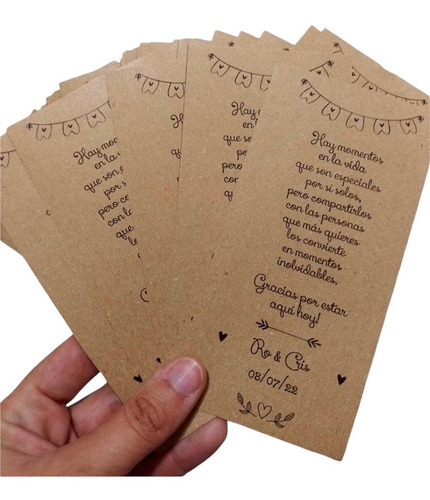 Hay momentos
en la vida
que son especiales
por sí solos,
pero compartirlos
con las personas
que más quieres
los convierte
en momentos
inolvidables.
Gracias por estar
aquí hoy!
Ro & Cris
08/07/22
Hay
en
que so
por
pero
con
qu
Hay mom
en la
que son
por s
pero c
con l
que
l